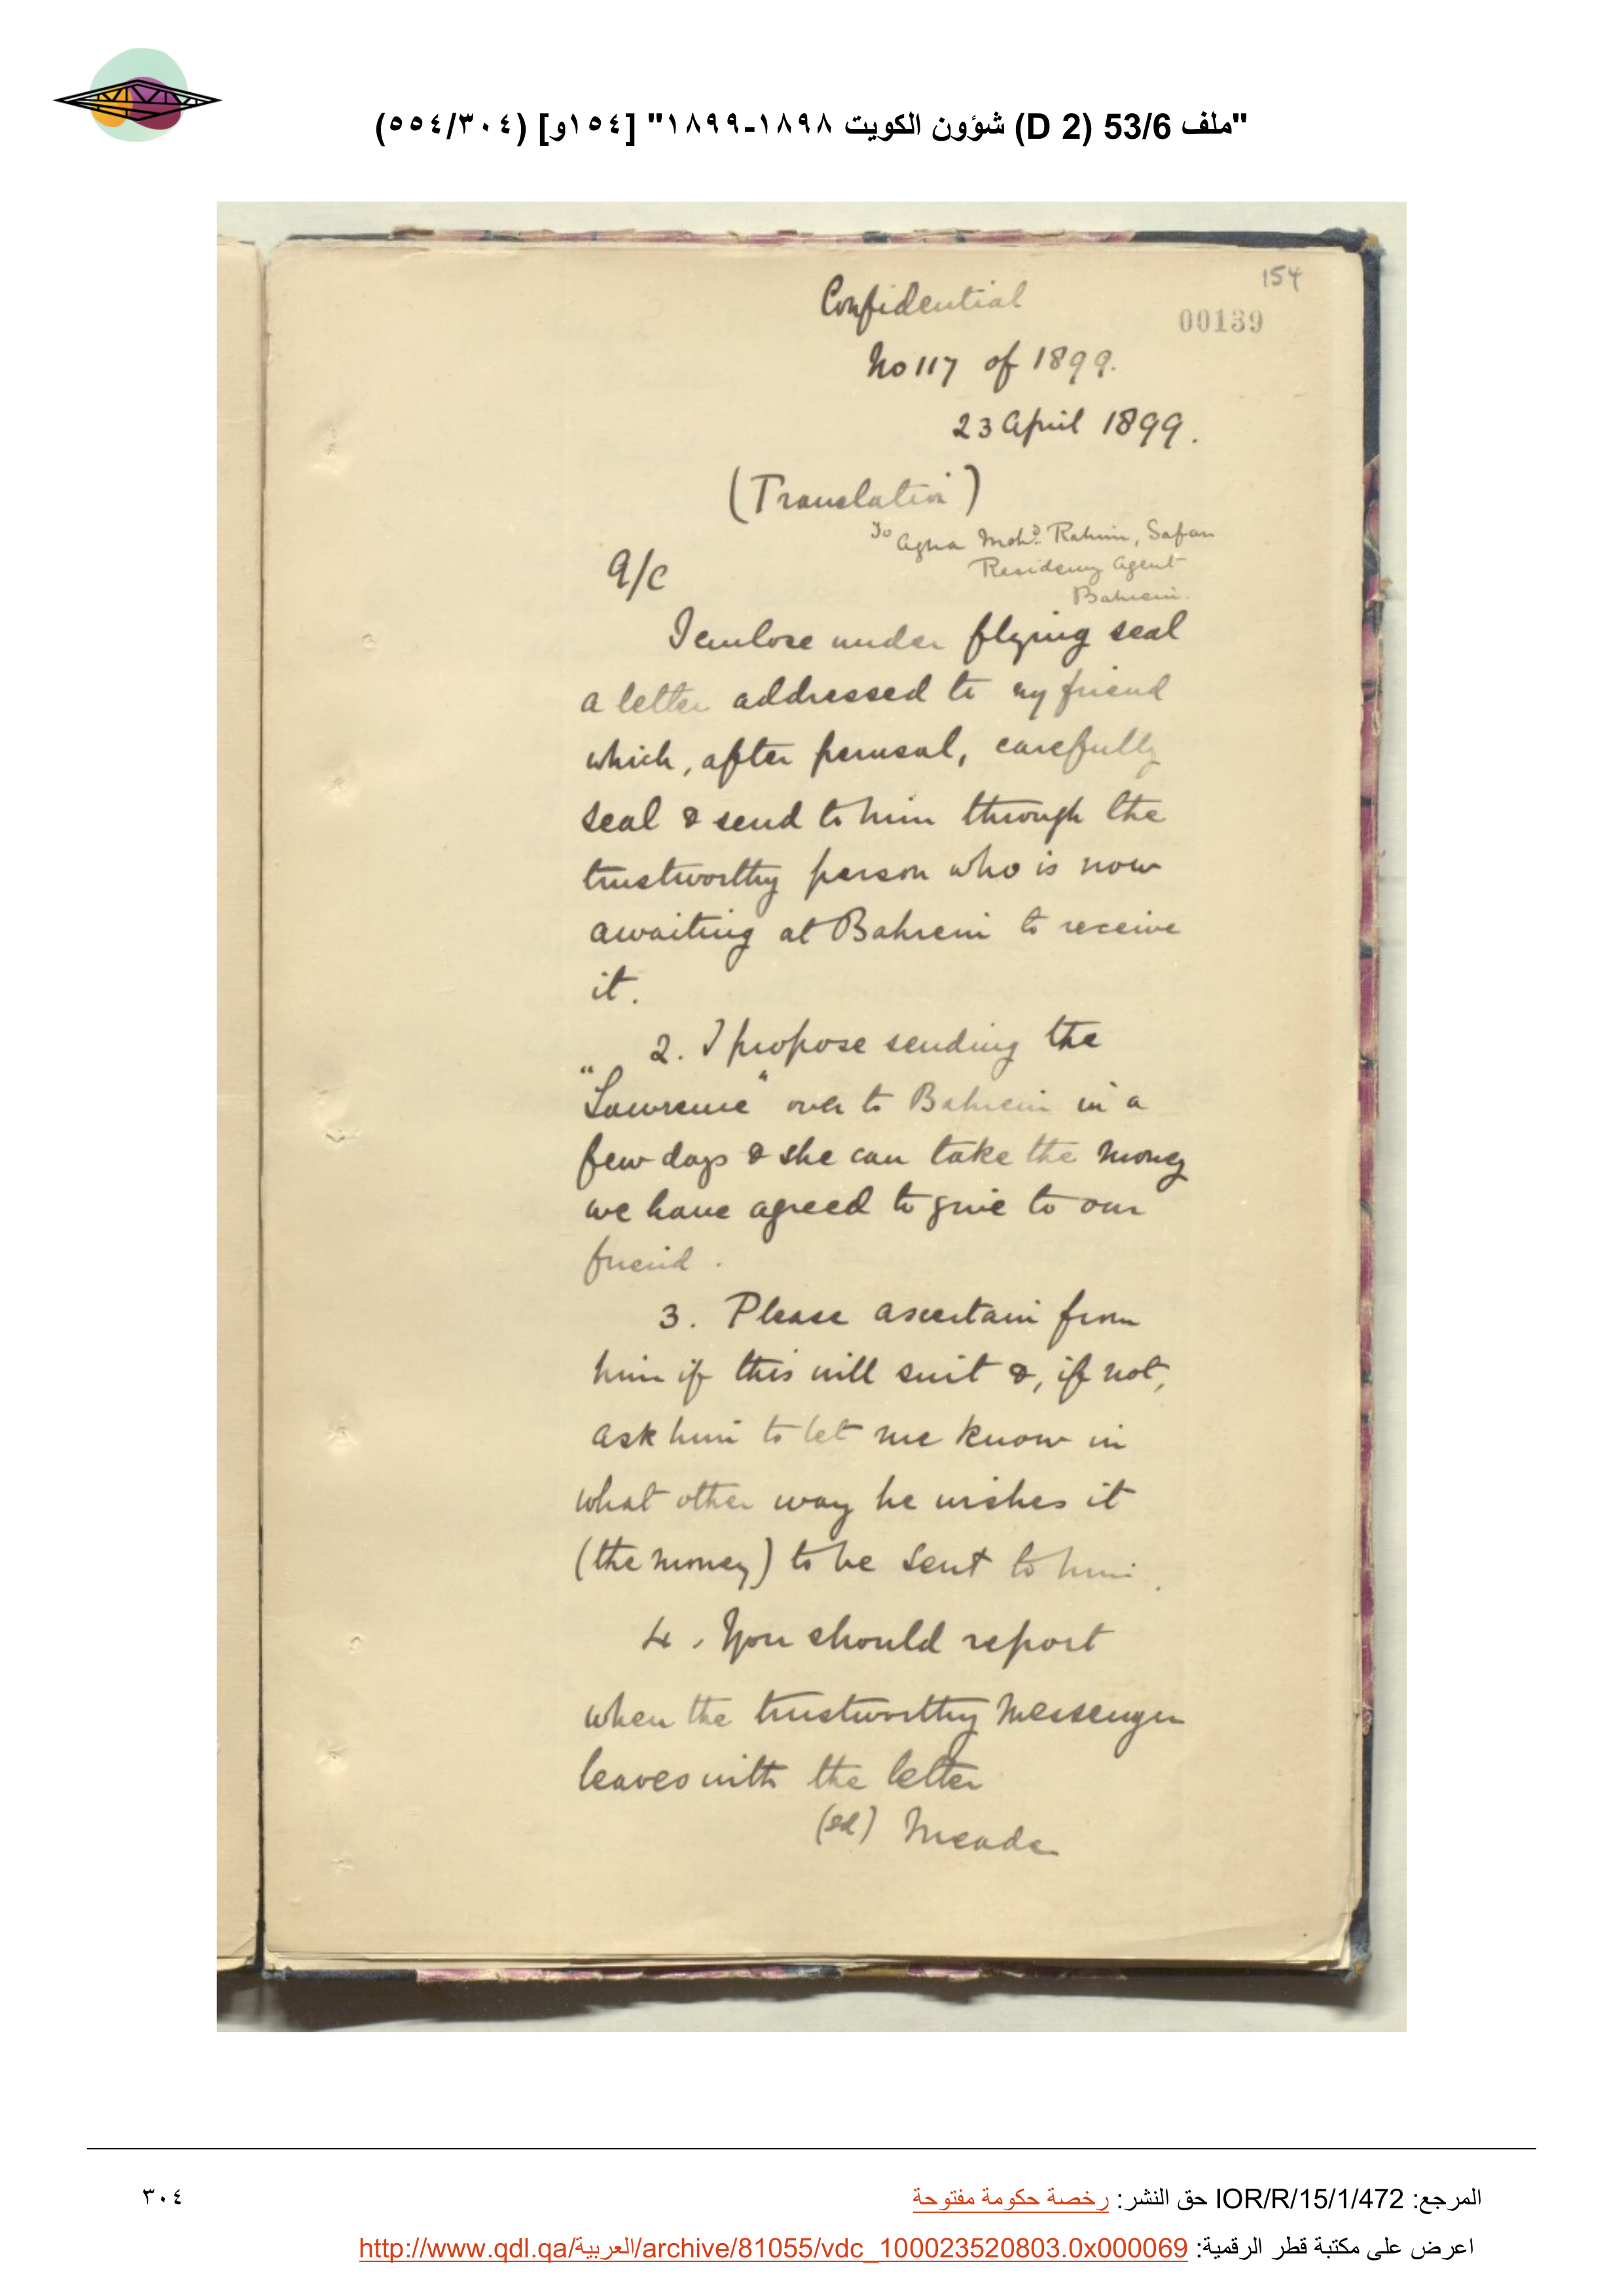 "ملف 53/6 (D 2) شؤون الكويت ١٨٩٨-١٨٩٩" [١٥٤و] (٥٥٤/٣٠٤)
154
Confidential
00139
No 117 of 1899.
23 April 1899.
(Translation)
To Agha Mohd. Rahim, Safar
Residency Agent
Bahrein.
a/c
I enclose under flying seal
a letter addressed to my friend
which, after perusal, carefully
seal & send to him through the
trustworthy person who is now
awaiting at Bahrein to receive
it.
2. I propose sending the
"Lawrence" over to Bahrein in a
few days & she can take the money
we have agreed to give to our
friend.
3. Please ascertain from
him if this will suit &, if not,
ask him to let me know in
what other way he wishes it
(the money) to be sent to him.
4. You should report
when the trustworthy messenger
leaves with the letter
(sd) Meade
المرجع: IOR/R/15/1/472 حق النشر: رخصة حكومة مفتوحة
٣٠٤
اعرض على مكتبة قطر الرقمية: http://www.qdl.qa/العربية/archive/81055/vdc_100023520803.0x000069